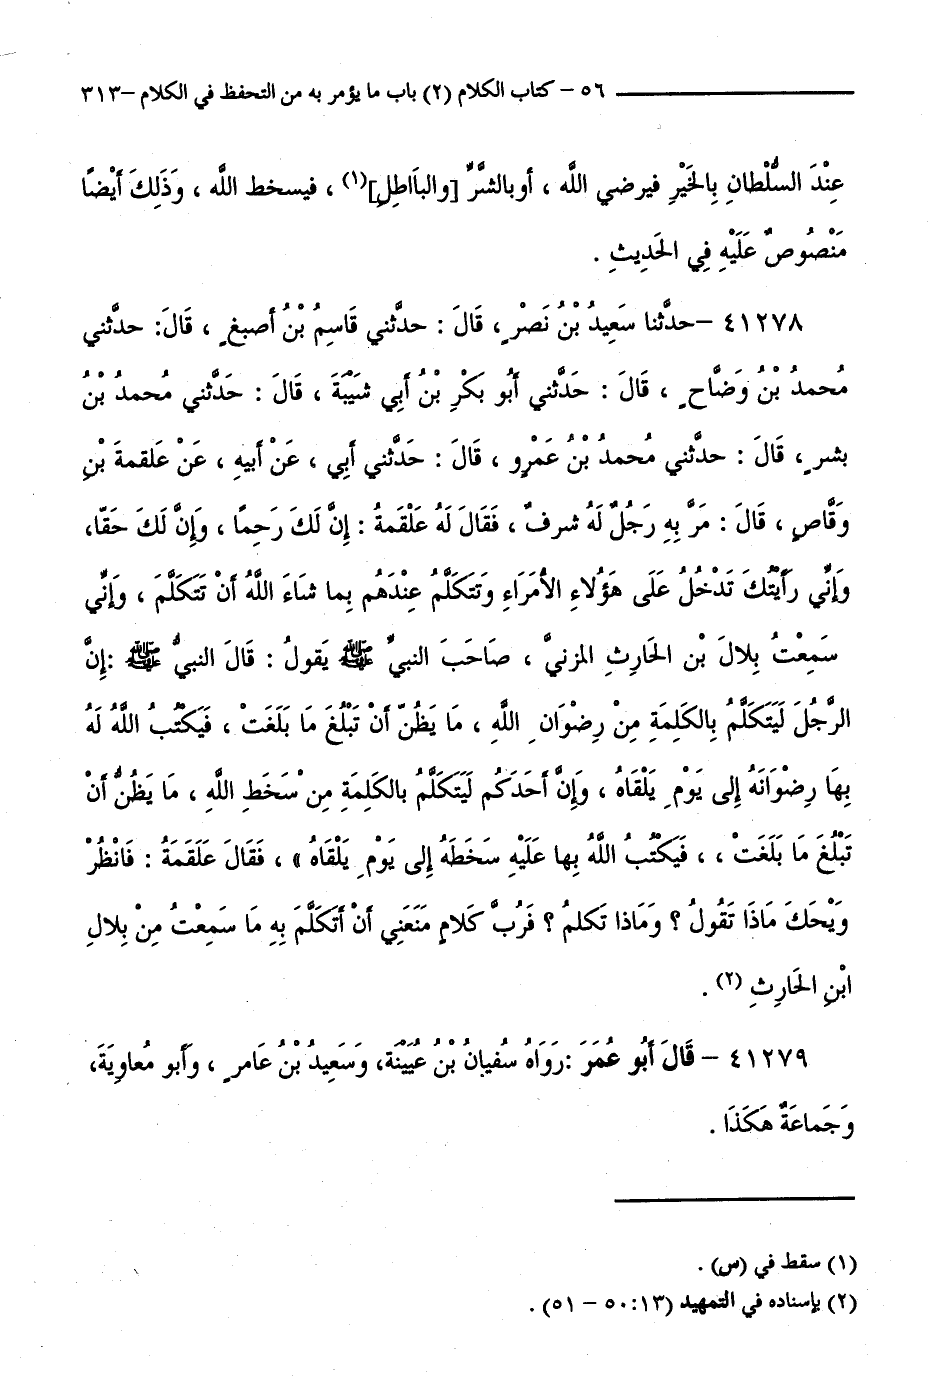 ٥٦ – كتاب الكلام (٢) باب ما يؤمر به من التحفظ في الكلام –٣١٣
عِنْدَ السُّلْطانِ بِالخَيْرِ فيرضي اللَّه ، أو بالشرِّ [والباَاطِلِ](١) ، فيسخط اللَّه ، وَذَلِكَ أَيْضًا
مَنْصُوصٌ عَلَيْهِ فِي الحَدِيثِ .
٤١٢٧٨ –حدَّثنا سَعِيدُ بْنُ نَصْرٍ ، قَالَ : حدَّثني قَاسِمُ بْنُ أصبغٍ ، قَالَ: حدَّثني
مُحمدُ بْنُ وَضَّاحٍ ، قَالَ : حَدَّثني أَبُو بَكْرِ بْنُ أَبِي شَيْبَةَ ، قَالَ : حَدَّثني مُحمدُ بْنُ
بشرٍ ، قَالَ : حدَّثني مُحمدُ بْنُ عَمْرٍو ، قَالَ : حَدَّثني أَبِي ، عَنْ أَبيهِ ، عَنْ عَلقمةَ بْنِ
وَقَّاصٍ ، قَالَ : مَرَّ بِهِ رَجُلٌ لَهُ شرفٌ ، فَقَالَ لَهُ عَلْقَمةُ : إِنَّ لَكَ رَحِمًا ، وَإِنَّ لَكَ حَقّا،
وَإِنِّي رَأَيْتُكَ تَدْخُلُ عَلَى هَؤُلاءِ الأُمَرَاءِ وَتَتكَلَّمُ عِنْدَهُم بِما شَاءَ اللَّهُ أَنْ تَتَكَلَّمَ ، وَإِنِّي
سَمِعْتُ بِلالَ بْن الحَارِثِ المزنيَّ ، صَاحَبَ النبيِّ ﷺ يَقولُ : قَالَ النبيُّ ﷺ :إِنَّ
الرَّجُلَ لَيَتَكَلَّمُ بِالكَلِمَةِ مِنْ رِضْوَانِ اللَّهِ ، مَا يَظُنّ أَنْ تَبْلُغَ مَا بَلَغَتْ ، فَيَكْتُبُ اللَّهُ لَهُ
بِهَا رِضْوَانَهُ إِلى يَوْمِ يَلْقَاهُ ، وَإِنَّ أَحَدَكُم لَيَتَكَلَّمُ بالكَلِمَةِ مِنْ سَخَطِ اللَّهِ ، مَا يَظُنُّ أَنْ
تَبْلُغَ مَا بَلَغَتْ ، ، فَيَكْتُبُ اللَّهُ بِها عَلَيْهِ سَخَطَهُ إِلى يَوْمِ يَلْقَاهُ » ، فَقَالَ عَلَقَمَةُ : فَانْظُرْ
وَيْحَكَ مَاذَا تَقُولُ ؟ وَمَاذا تَكلمُ ؟ فَرُبَّ كَلامٍ مَنَعَنِي أَنْ أَتَكَلَّمَ بِهِ مَا سَمِعْتُ مِنْ بِلالِ
ابْنِ الحَارِثِ (٢) .
٤١٢٧٩ – قَالَ أَبُو عُمَرَ :رَوَاهُ سُفيانُ بْنُ عُيَيْنَة، وَسَعِيدُ بْنُ عَامرٍ ، وَأَبو مُعاوِيَةَ،
وَجَماعَةٌ هَكَذَا .
(١) سقط في (س) .
(٢) بإسناده في التمهيد (١٣:٥٠ – ٥١) .